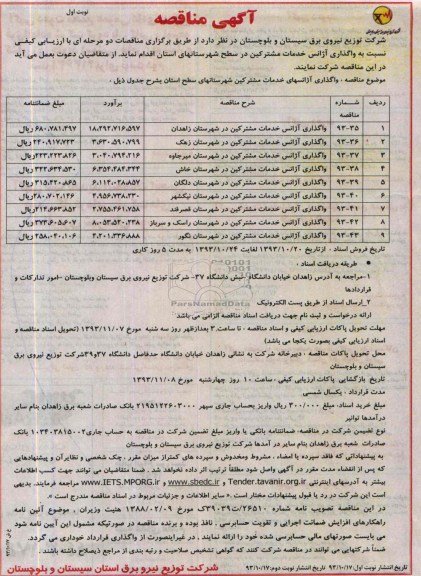 نوبت اول
آگهی مناقصه
شرکت توزیع نیروی برق سیستان و بلوچستان در نظر دارد از طریق برگزاری مناقصات دو مرحله ای با ارزیابی کیفی
نسبت به واگذاری آژانس خدمات مشترکین در سطح شهرستانهای استان اقدام نماید. از متقاضیان دعوت بعمل می آید
در این مناقصه شرکت نمایند.
موضوع مناقصه : واگذاری آژانسهای خدمات مشترکین شهرستانهای سطح استان بشرح جدول ذیل :
ردیف شماره مناقصه شرح مناقصه برآورد مبلغ ضمانتنامه
۱ ۹۳-۳۵ واگذاری آژانس خدمات مشترکین در شهرستان زاهدان ریال
۲ ۹۳-۳۶ واگذاری آژانس خدمات مشترکین در شهرستان زهک ریال
۳ ۹۳-۳۷ واگذاری آژانس خدمات مشترکین در شهرستان میرجاوه ریال
۴ ۹۳-۳۸ واگذاری آژانس خدمات مشترکین در شهرستان خاش ریال
۵ ۹۳-۳۹ واگذاری آژانس خدمات مشترکین در شهرستان دلگان ریال
۶ ۹۳-۴۰ واگذاری آژانس خدمات مشترکین در شهرستان نیکشهر ریال
۷ ۹۳-۴۱ واگذاری آژانس خدمات مشترکین در شهرستان قصرقند ریال
۸ ۹۳-۴۲ واگذاری آژانس خدمات مشترکین در شهرستان راسک و سرباز ریال
۹ ۹۳-۴۳ واگذاری آژانس خدمات مشترکین در شهرستان نگور ریال
تاریخ فروش اسناد : از تاریخ ۱۳۹۳/۱۰/۲۰ لغایت ۱۳۹۳/۱۰/۲۴ به مدت ۵ روز کاری
طریقه دریافت اسناد :
۱-مراجعه به آدرس زاهدان خیابان دانشگاه -نبش دانشگاه ۳۷- شرکت توزیع نیروی برق سیستان وبلوچستان -امور تدارکات و
قراردادها
۲_ارسال اسناد از طریق پست الکترونیک
ارائه درخواست و ثبت نام جهت دریافت اسناد مناقصه الزامی می باشد
مهلت تحویل پاکات ارزیابی کیفی و اسناد مناقصه : تا ساعت ۳ بعدازظهر روز سه شنبه مورخ ۱۳۹۳/۱۱/۰۷ (تحویل اسناد مناقصه و
اسناد ارزیابی کیفی بصورت یکجا می باشد)
محل تحویل پاکات مناقصه : دبیرخانه شرکت به نشانی زاهدان خیابان دانشگاه حدفاصل دانشگاه ۳۷و۳۹شرکت توزیع نیروی برق
سیستان و بلوچستان
تاریخ بازگشایی پاکات ارزیابی کیفی : ساعت ۱۰ روز چهارشنبه مورخ ۱۳۹۳/۱۱/۰۸
مدت قرارداد : یکسال شمسی
مبلغ خرید اسناد: مبلغ ۳۰۰/۰۰۰ ریال واریز بحساب جاری سپهر بانک صادرات شعبه برق زاهدان بنام سایر
درآمدها توانیر
نوع تضمین شرکت در مناقصه: ضمانتنامه بانکی یا واریز مبلغ تضمین شرکت در مناقصه به حساب جاری بانک
صادرات شعبه برق زاهدان بنام سایر در آمدها شرکت توزیع نیروی برق سیستان و بلوچستان
به پیشنهاداتی که فاقد سپرده یا امضاء ، مشروط ومخدوش و سپرده های کمتراز میزان مقرر ، چک شخصی و نظایر آن و پیشنهادهایی
که پس از انقضاء مدت مقرر در آگهی واصل شود مطلقاً ترتیب اثر داده نخواهد شد . ضمنا متقاضیان می توانند جهت کسب اطلاعات
بیشتر به آدرسهای اینترنتی Tender.tavanir.org.ir و www.sbedc.ir و www.IETS.MPORG.ir مراجعه فرمایند. بدیهی
است این شرکت در رد یا قبول پیشنهادات مختار است.« سایر اطلاعات و جزئیات مربوط در اسناد مناقصه مندرج است ».
در این مناقصه تصویب نامه شماره مورخ ۱۳۸۸/۰۲/۰۹ هیئت وزیران ، موضوع آئین نامه
راهکارهای افزایش ضمانت اجرایی و تقویت حسابرسی . نافذ بوده و برنده مناقصه در صورتیکه مشمول این آیین نامه شود
می بایست صورتهای مالی حسابرسی شده خود را ارائه نمایند . در غیراینصورت از واگذاری قرارداد خودداری می گردد.
ضمناً شرکتهایی می توانند در مناقصه شرکت کنند که گواهی تشخیص صلاحیت و رتبه بندی از مراجع ذیصلاح داشته باشند .
تاریخ انتشار نوبت اول ۹۳/۱۰/۱۷ تاریخ انتشار نوبت دوم: ۹۳/۱۰/۱۷
شرکت توزیع نیرو برق استان سیستان و بلوچستان
ParsNamadData